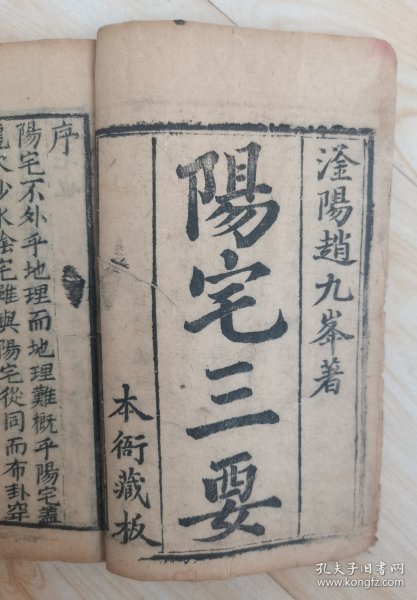 滏陽趙九峯著
陽宅三要
本衙藏板
序
陽宅不外乎地理而地理難概乎陽宅蓋
龍穴沙水陰宅雖與陽宅從同而布卦穿
孔夫子旧书网
www.kongfz.com